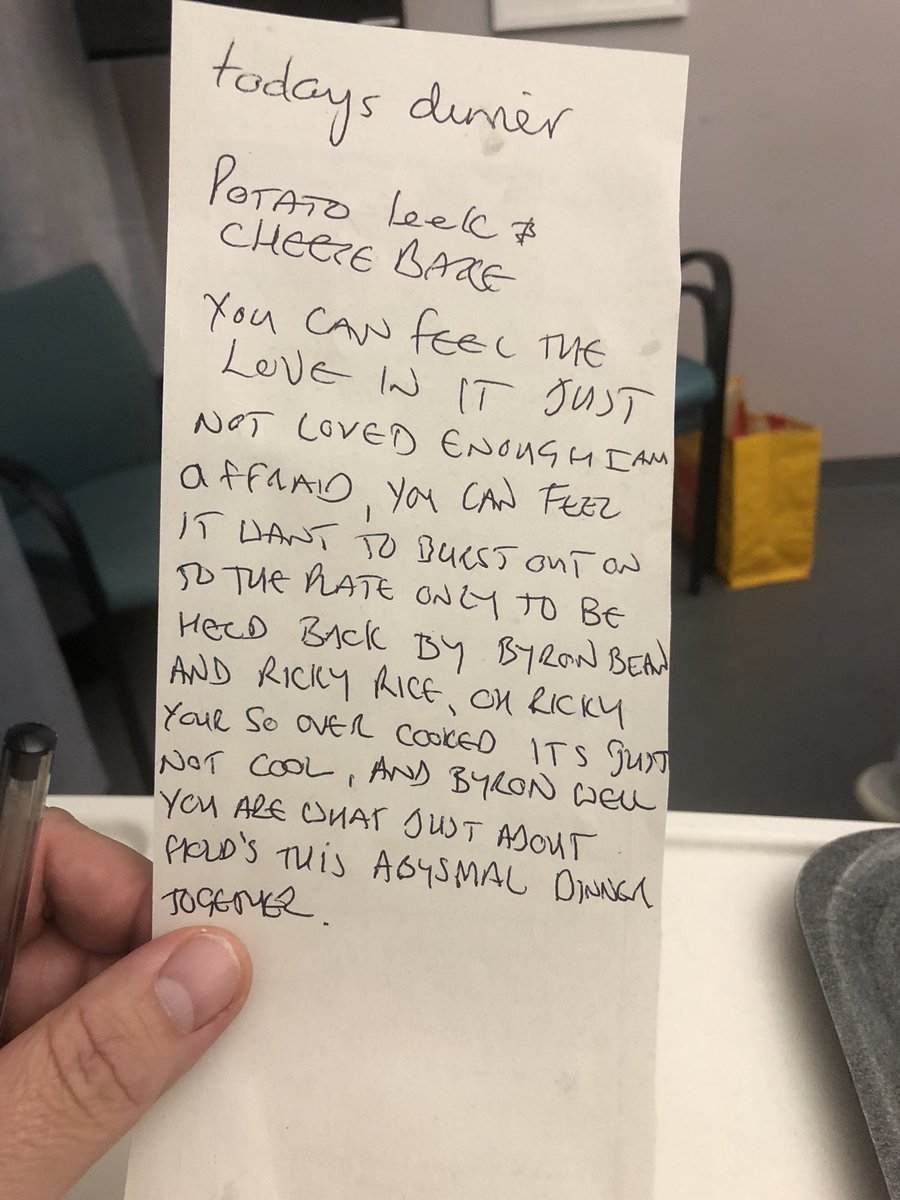 todays dinner
POTATO leek &
CHEEZE BAKE
YOU CAN FEEL THE
LOVE IN IT JUST
NOT LOVED ENOUGH I AM
AFFRAID, YOU CAN FEEL
IT WANT TO BURST OUT ON
TO THE PLATE ONLY TO BE
HELD BACK BY BYRON BEAN
AND RICKY RICE, OH RICKY
YOUR SO OVER COOKED ITS JUST
NOT COOL, AND BYRON WELL
YOU ARE WHAT JUST ABOUT
HOLD'S THIS ABYSMAL DINNER
TOGETHER.